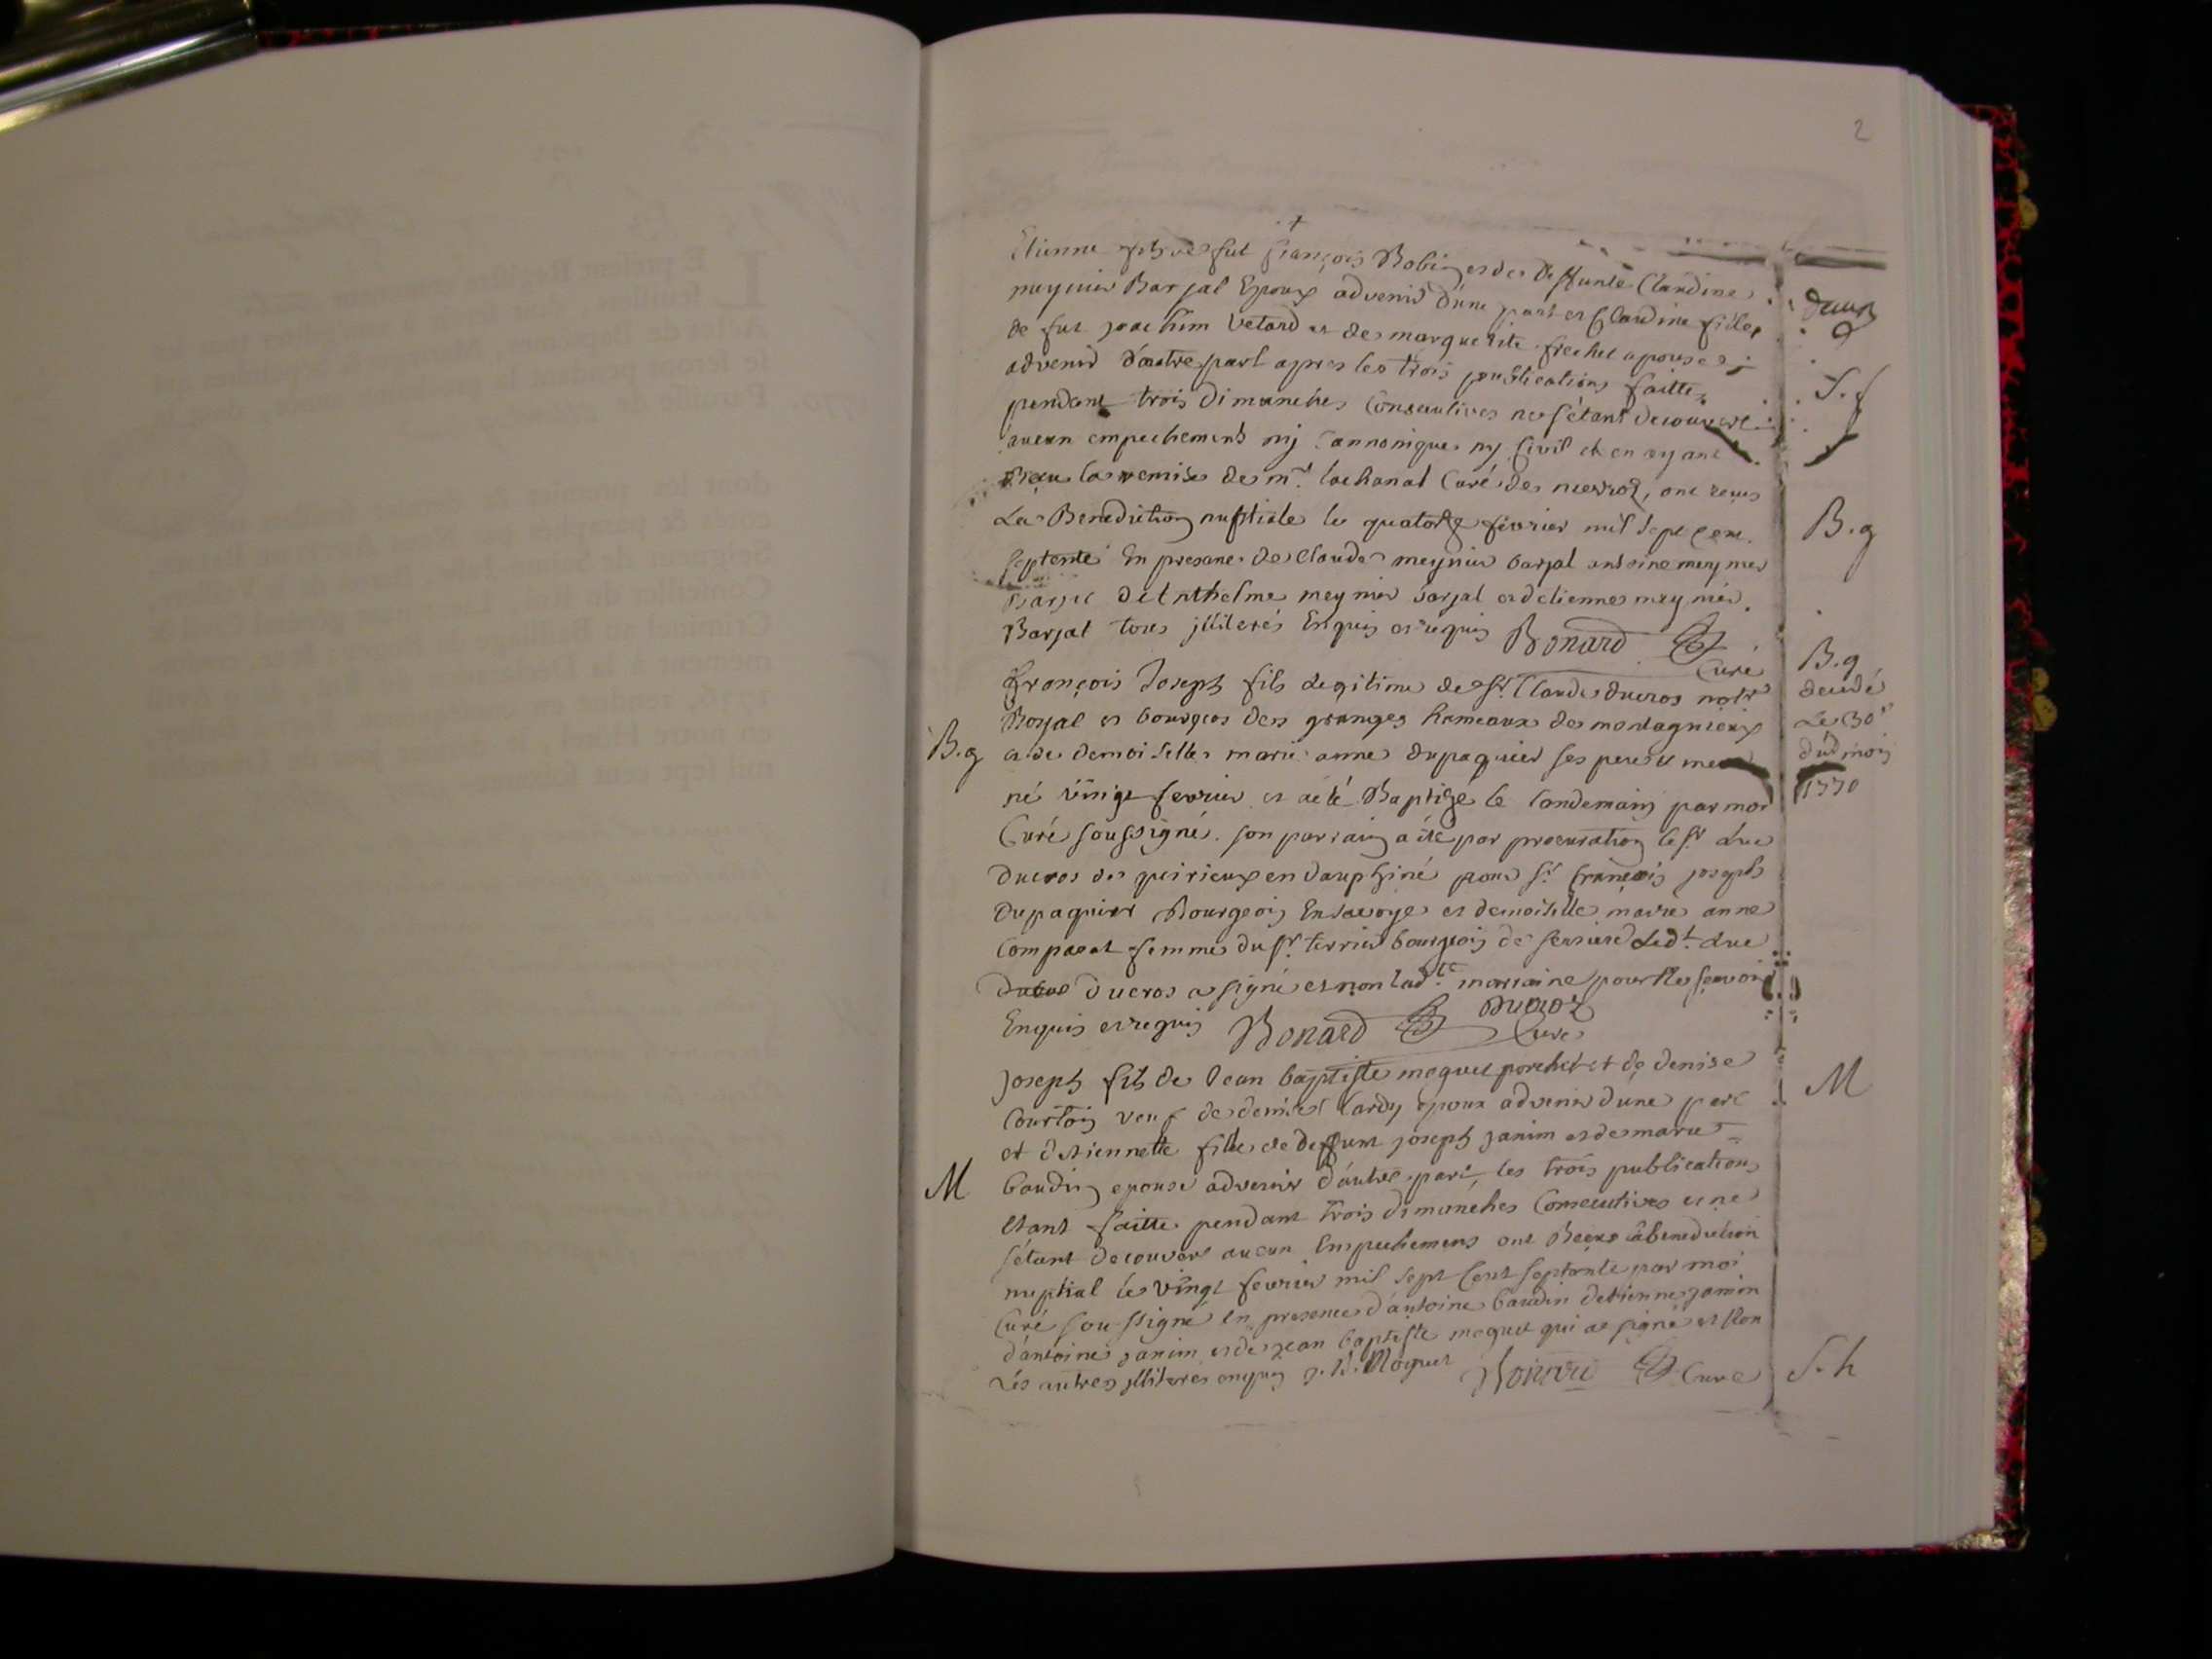 2
Etienne fils de fut françois Robin et de deffunte Claudine
meynier Barjal Epoux advenir d'une part et Claudine fille
de fut joachim Vetard et de marguerite frechet epouse
advenir d'autre part apres les trois publications faitte
pendant trois dimanches Consecutives ne s'étant decouvert
aucun empechement nij Cannonique ny Civil et en ayant
la remise de mr. lachanal Curé de ont reçus
La Benediction nuptiale le quatorze fevrier mil sept cent
septente En presance de Claude meynier barjal antoine meynier
Barjal d'Enthelme meynier barjal et d'etienne meynier
Barjal tous jlliterés Enquis et requis Bonard
Curé
B.g
B.g
B.g
decedé
Le 30e
dud mois
1770
françois Joseph fils legitime de sr. Claude ducros notre
Royal et bourgeois des granges hameaux de montagnieux
et de demoiselle marie anne dupaquier ses pere et mere
né vingt fevrier et a eté Baptizé le landemain par moi
Curé soussigné. son parrain a été par procuration le sr. Luc
Ducros de quirieux en dauphiné pour sr. françois joseph
Dupaquier Bourgeois En Savoye et demoiselle marie anne
Comparat femme du sr. terrier bourgeois de serriere Ledt. Luc
Ducros a signé et non ladte. marraine pour ne sçavoir
Enquis et requis Bonard Ducroz
Curé
Joseph fils de Jean baptiste moguet porchet et de denise
Courtois veuf de denise Cardy epoux advenir d'une part
et d'Etiennette fille de deffunt joseph janim et de marie
baudin epouse advenir d'autre part, les trois publications
etant faitte pendant trois dimanches Consecutives et ne
s'étant decouvert aucun Empechement ont Reçus la benediction
nuptial le vingt fevrier mil sept Cent septante par moi
Curé soussigné en presence d'antoine baudin d'etienne janim
d'antoine janim et de jean baptiste moguet qui a signé et Non
Les autres jlliteres enquis J. B. Moguet Bonard Curé
M
M
S.h